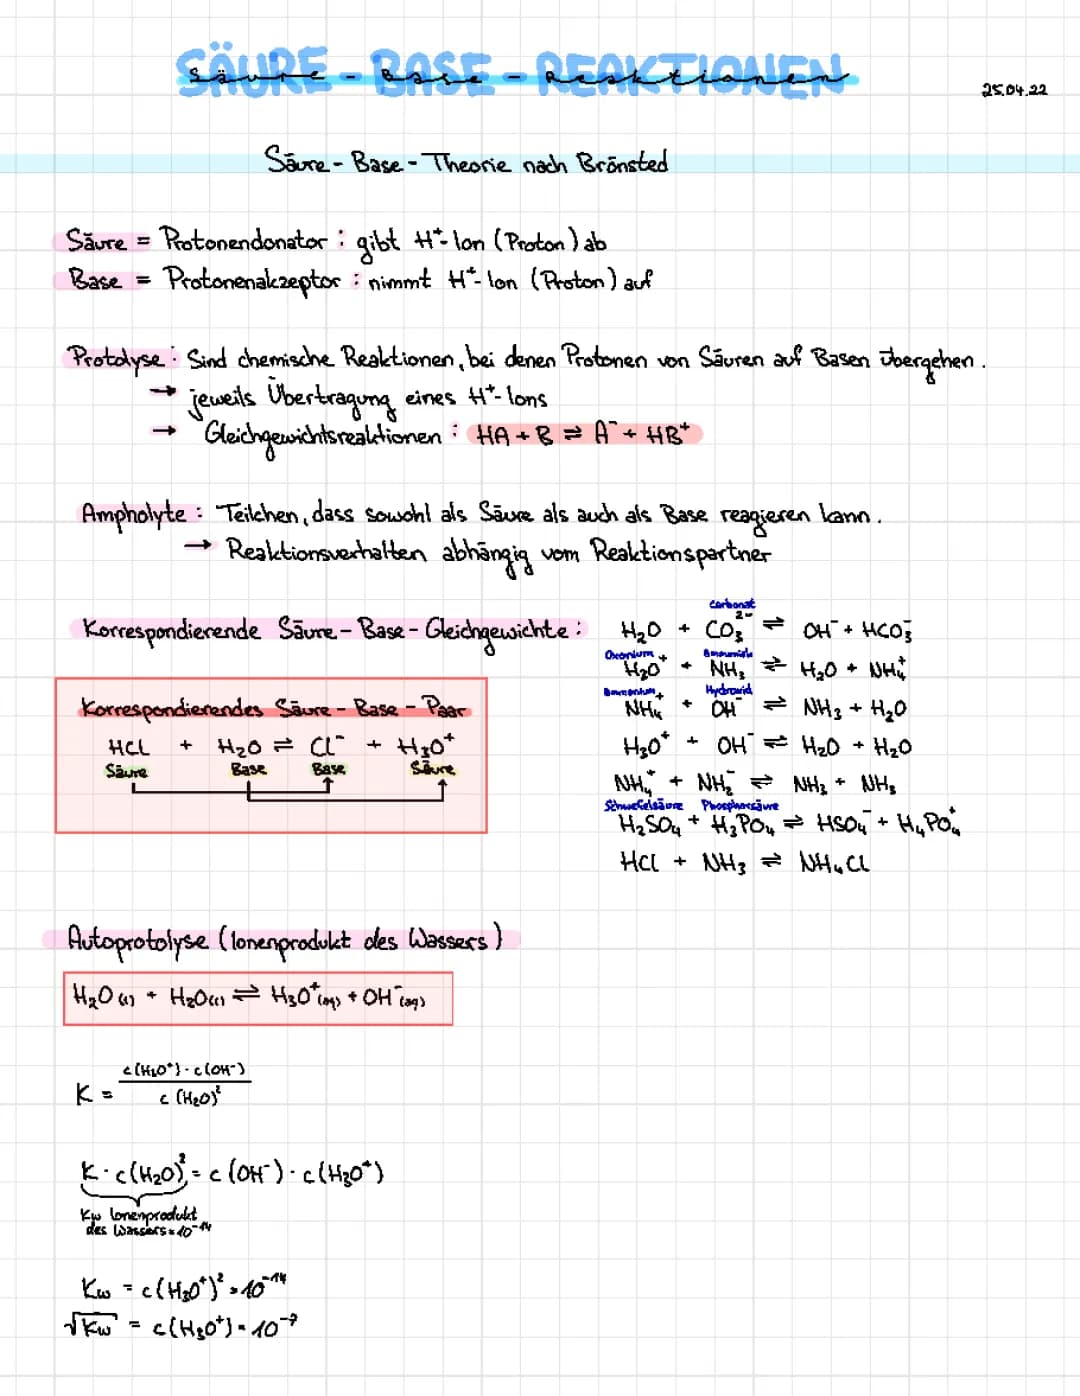 SÄURE - BASE - REAKTIONEN
Säure - Base - Reaktionen
25.04.22
Säure - Base - Theorie nach Brönsted
Säure = Protonendonator : gibt H⁺- Ion (Proton) ab
Base = Protonenakzeptor : nimmt H⁺- Ion (Proton) auf
Protolyse : Sind chemische Reaktionen, bei denen Protonen von Säuren auf Basen übergehen.
→ jeweils Übertragung eines H⁺- Ions
→ Gleichgewichtsreaktionen : HA + B ⇌ A⁻ + HB⁺
Ampholyte : Teilchen, dass sowohl als Säure als auch als Base reagieren kann.
→ Reaktionsverhalten abhängig vom Reaktionspartner
Korrespondierende Säure - Base - Gleichgewichte :
Carbonat
H₂O + CO₃²⁻ ⇌ OH⁻ + HCO₃⁻
Oxonium Ammoniak
H₃O⁺ + NH₃ ⇌ H₂O + NH₄⁺
Ammonium Hydroxid
NH₄⁺ + OH⁻ ⇌ NH₃ + H₂O
H₃O⁺ + OH⁻ ⇌ H₂O + H₂O
NH₄⁺ + NH₂⁻ ⇌ NH₃ + NH₃
Schwefelsäure Phosphorsäure
H₂SO₄ + H₃PO₄ ⇌ HSO₄⁻ + H₄PO₄⁺
HCl + NH₃ ⇌ NH₄Cl
Korrespondierendes Säure - Base - Paar
HCL + H₂O ⇌ Cl⁻ + H₃O⁺
Säure Base Base Säure
Autoprotolyse (Ionenprodukt des Wassers)
H₂O (l) + H₂O(l) ⇌ H₃O⁺(aq) + OH⁻(aq)
K = c(H₃O⁺) · c(OH⁻) / c (H₂O)²
K · c(H₂O)² = c (OH⁻) · c(H₃O⁺)
Kw Ionenprodukt
des Wassers = 10⁻¹⁴
Kw = c(H₃O⁺)² = 10⁻¹⁴
√Kw = c(H₃O⁺) = 10⁻⁷